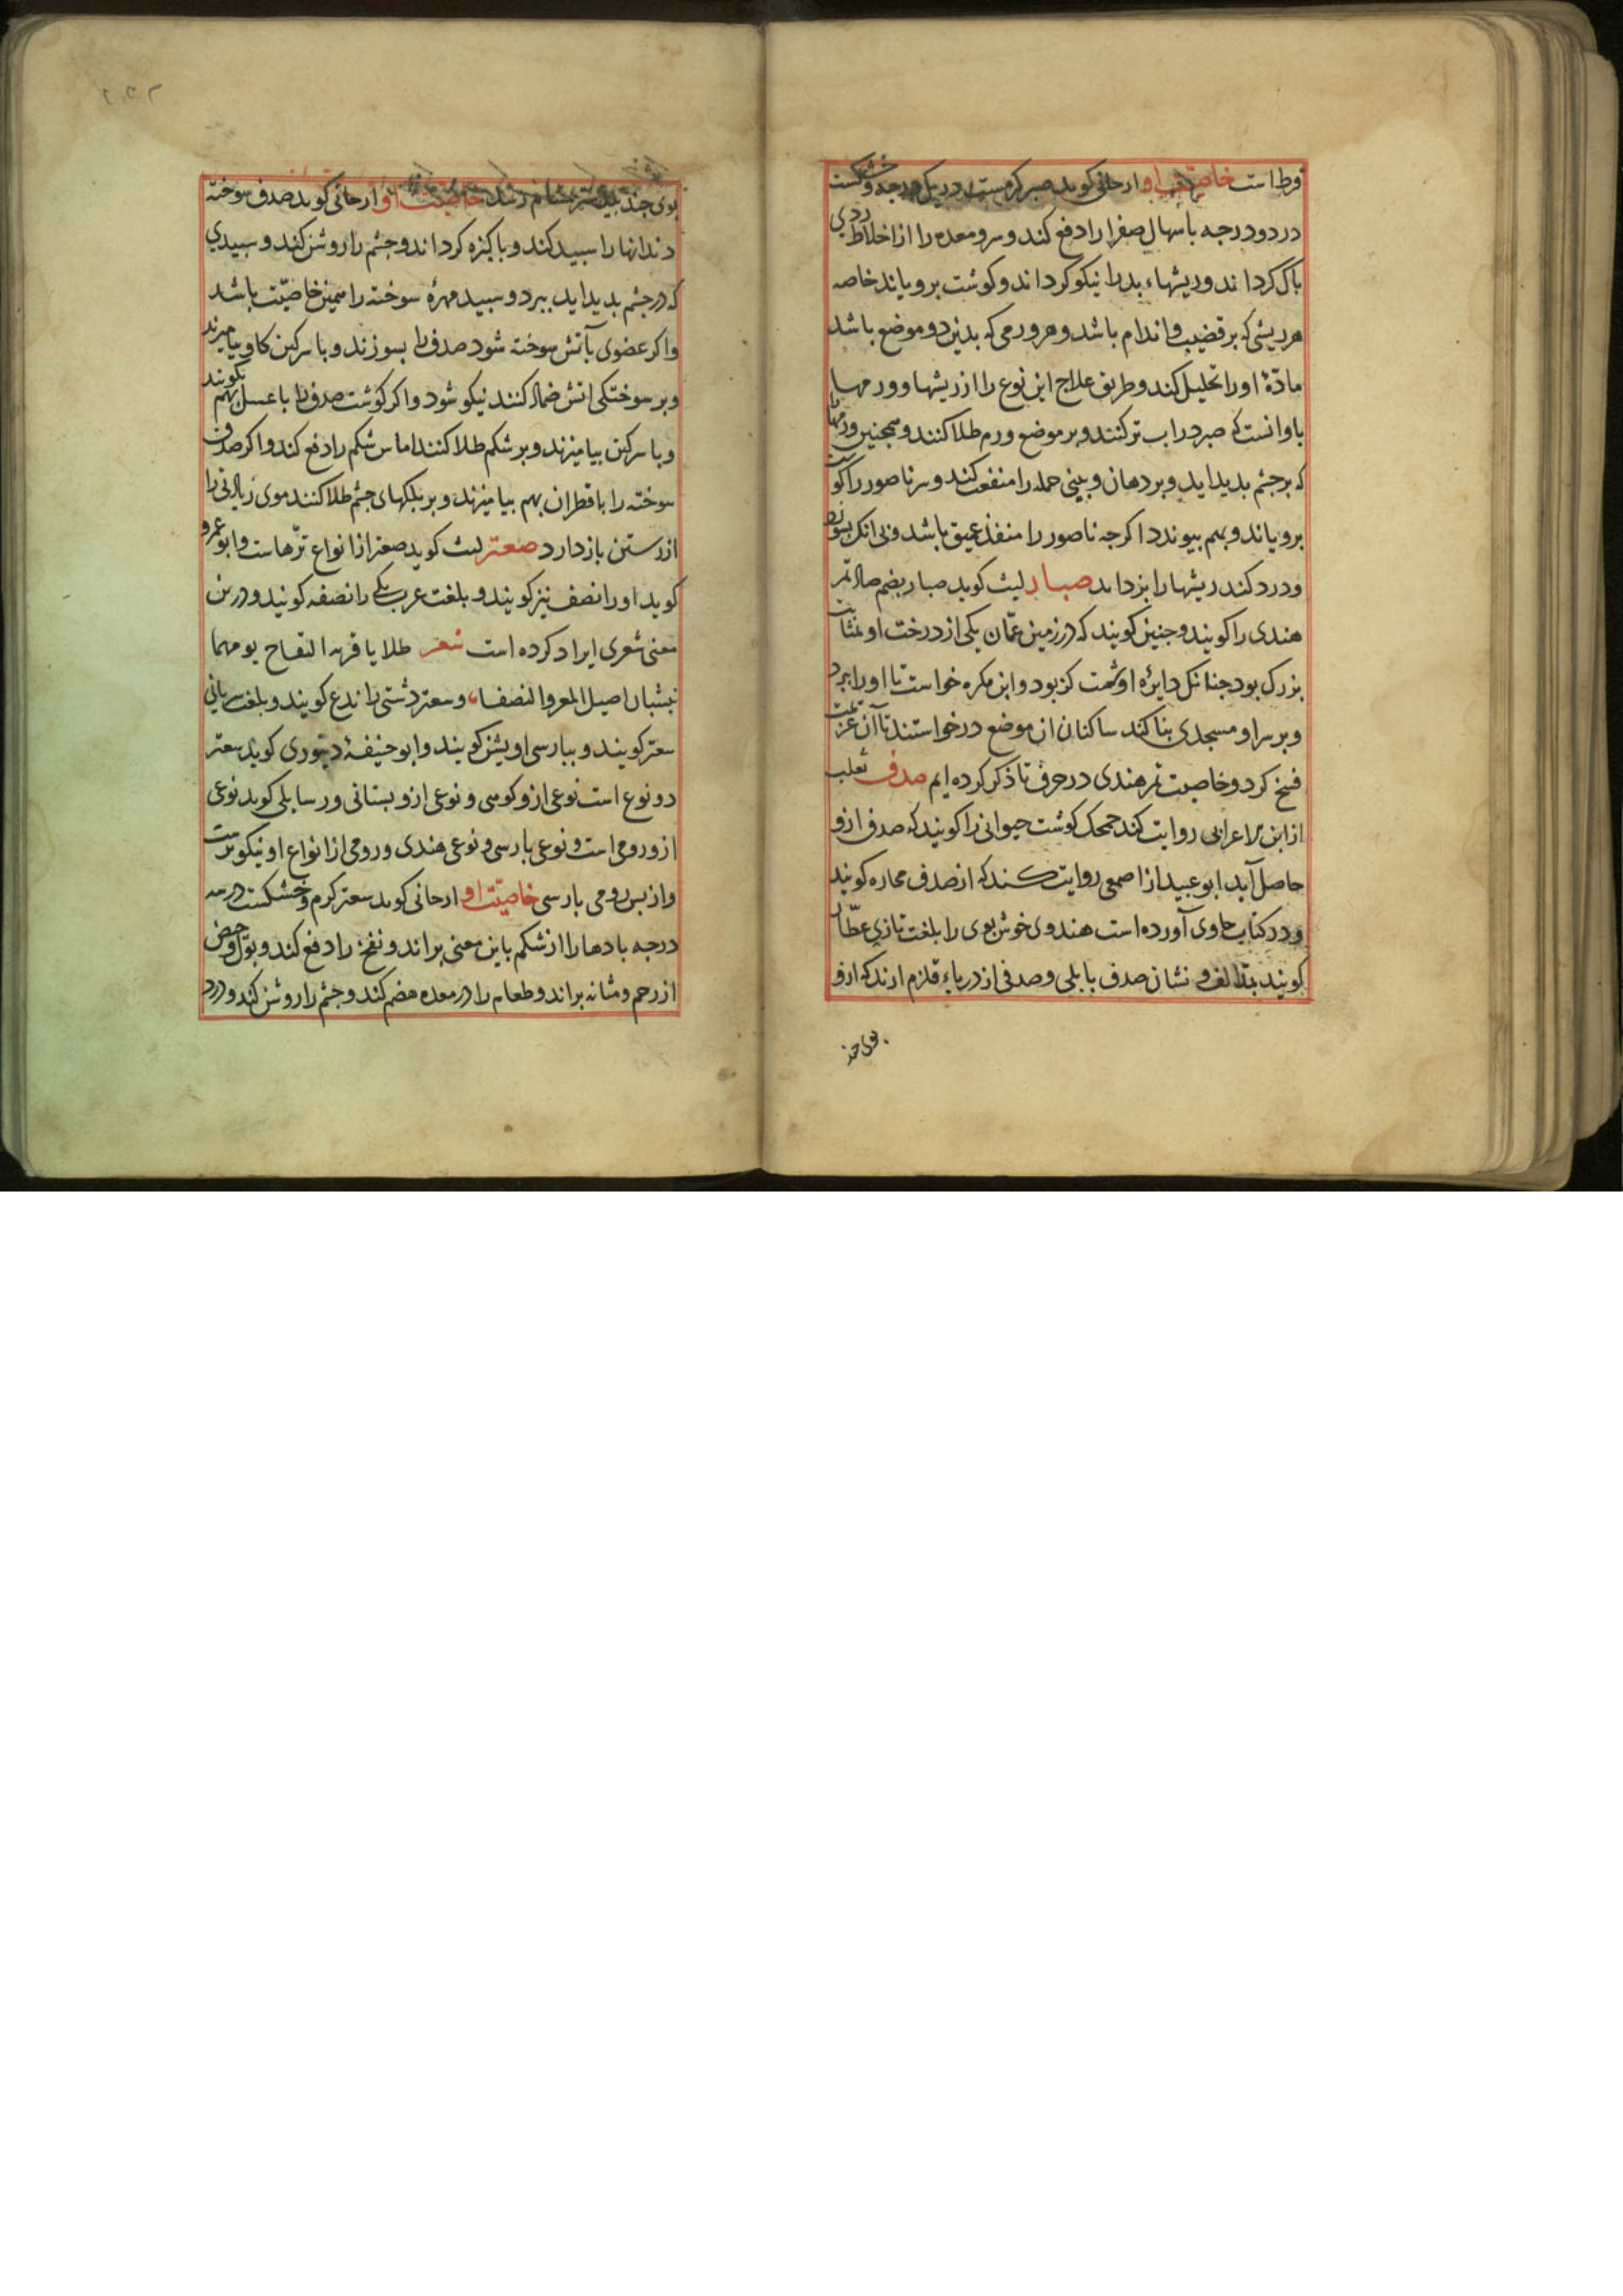 وط است خاصیت او ارجانی کوید صبر کرمست در یک درجه و خشکست
در دو درجه باسهال صفرا را دفع کند و سر و معده را از اخلاط ردی
باک کرداند و ریشهاء بد را نیکو کرداند و کوشت برویاند خاصه
هر ریشی که بر قضیب و اندام باشد و هر ورمی که بدین دو موضع باشد
مادّهٔ او را تحلیل کند و طریق علاج این نوع را از ریشها و ورمها
باو انست که صبر در اب تر کنند و بر موضع ورم طلا کنند و همجنین ورمها را
که بر جشم بدید اید و بر دهان و بینی جمله را منفعت کند و سر ناصور را کوشت
برویاند و بهم بیوندد اکرجه ناصور را منفذ عمیق باشد و بی انک بسوزد
و درد کند ریشها را بزداید صبار لیث کوید صبار بضم صاد تمر
هندی را کویند و جنین کویند که در زمین عمّان یکی از درخت او بغایت
بزرک بود جنانک دایرٔه او شصت کز بود و ابن مکره خواست تا او را ببرد
و بر سر او مسجدی بنا کند ساکنان ان موضع درخواستند تا آن عزیمت
فسخ کرد و خاصیت تمر هندی در حرف تا ذکر کرده ایم صدف ثعلب
از ابن الاعرابی روایت کند محک کوشت حیوانی را کویند که صدف ازو
حاصل آید ابو عبید از اصمعی روایت کند که از صدف محاره کویند
و در کتاب حاوی آورده است هندوی خوش بوی را بلغت تازی عطّار
کویند نشان صدف بابلی و صدفی از دریاء قلزم ارند که ازو
بوی جند
بوی جند بیدستر بمشام رسد خاصیت او ارجانی کوید صدف سوخته
دندانها را سبید کند و باکیزه کرداند و جشم را روشن کند و سبیدی
که در جشم بدید اید ببرد و سبید مهرهٔ سوخته را همین خاصیّت باشد
و اکر عضوی بآتش سوخته شود صدف را بسوزند و با سرکین کاو بیامیزند
و بر سوختکی اتش ضماد کنند نیکو شود و اکر کوشت صدف را با عسل بهم بکوبند
و با سرکین بیامیزند و بر شکم طلا کنند اماس شکم را دفع کند و اکر صدف
سوخته را با قطران بهم بیامیزند و بر بلکهای جشم طلا کنند موی زیادتی را
از رستن باز دارد صعتر لیث کوید صعتر از انواع ترّهاست و ابو عمرو
کوید او را نصف نیز کویند و بلغت عرب یکی را نصفه کویند و درین
معنی شعری ایراد کرده است شعر طلا یا قریه التفاح یو مهما
اصیل المعر و النصفا، و سعتر دشتی را ندغ کویند و بلغت سریانی
سعتر کویند و ببارسی اویشن کویند و ابو حنیفهٔ دینوری کوید سعتر
دو نوع است نوعی ازو کوهی و نوعی ازو بستانی و رسایلی کوید نوعی
ازو رومی است و نوعی بارسی و نوعی هندی و رومی از انواع او نیکوترست
و از بس رومی بارسی خاصیّت او ارجانی کوید سعتر کرم و خشکست در سه
درجه بادها را از شکم باین معنی براند و نفخ را دفع کند و بول و حیض
از رحم و مثانه براند و طعام را در معده هضم کند و جشم را روشن کند و درد